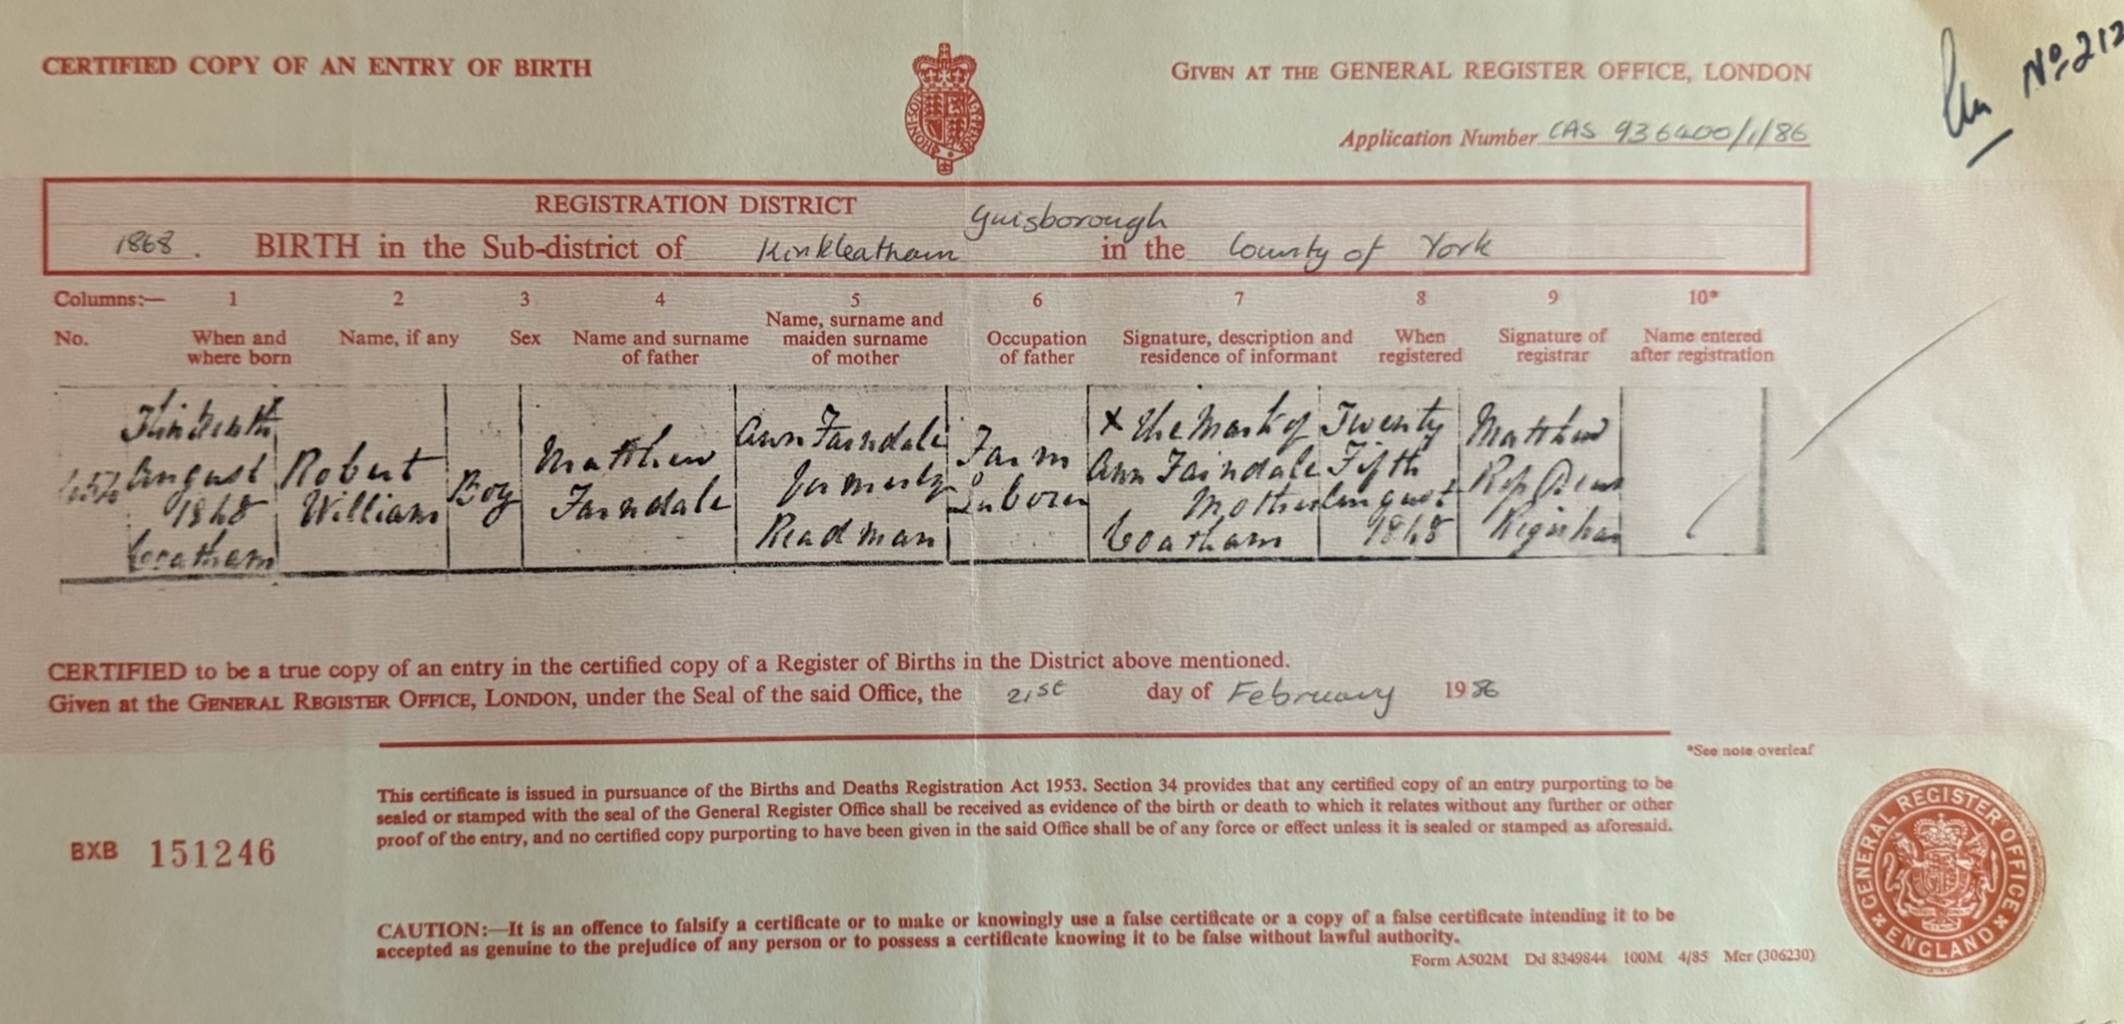 CERTIFIED COPY OF AN ENTRY OF BIRTH
GIVEN AT THE GENERAL REGISTER OFFICE, LONDON
Nº 212
Application Number CAS 936400/1/86
REGISTRATION DISTRICT Guisborough
1868. BIRTH in the Sub-district of Kirkleatham in the County of York
Columns:— 1 2 3 4 5 6 7 8 9 10*
No. When and where born
Name, if any
Sex
Name and surname of father
Name, surname and maiden surname of mother
Occupation of father
Signature, description and residence of informant
When registered
Signature of registrar
Name entered after registration
August
1868
Coatham
Robert
William
Boy
Matthew
Farndale
Ann Farndale
formerly
Readman
Farm
Labourer
X The Mark of
Ann Farndale
Mother
Coatham
Twenty
Fifth
August
1868
Matthew
Registrar
CERTIFIED to be a true copy of an entry in the certified copy of a Register of Births in the District above mentioned.
Given at the GENERAL REGISTER OFFICE, LONDON, under the Seal of the said Office, the 21st day of February 1986
*See note overleaf
This certificate is issued in pursuance of the Births and Deaths Registration Act 1953. Section 34 provides that any certified copy of an entry purporting to be
sealed or stamped with the seal of the General Register Office shall be received as evidence of the birth or death to which it relates without any further or other
proof of the entry, and no certified copy purporting to have been given in the said Office shall be of any force or effect unless it is sealed or stamped as aforesaid.
BXB 151246
CAUTION:—It is an offence to falsify a certificate or to make or knowingly use a false certificate or a copy of a false certificate intending it to be
accepted as genuine to the prejudice of any person or to possess a certificate knowing it to be false without lawful authority.
Form A502M Dd 8349844 100M 4/85 Mcr (306230)
GENERAL REGISTER OFFICE
ENGLAND